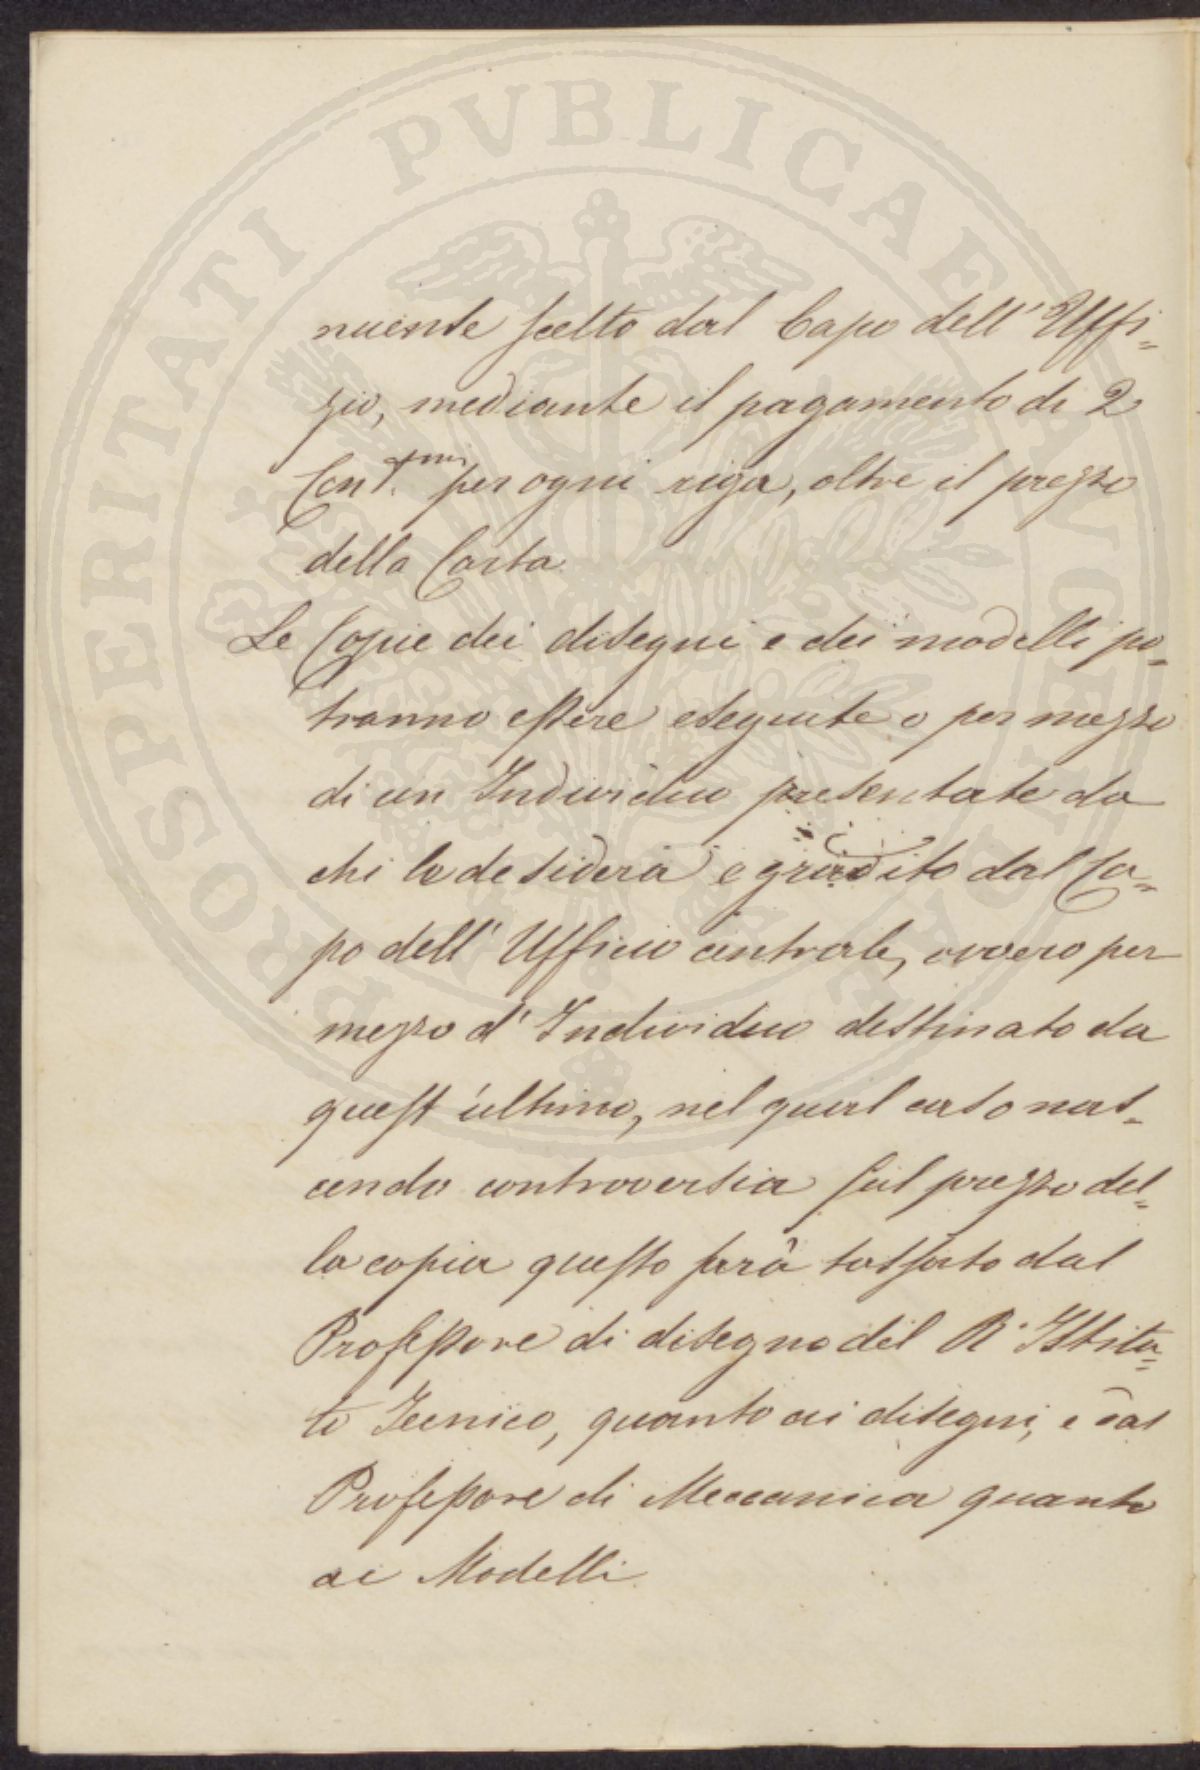 PROSPERITATI PVBLICAE AVGENDAE
nuente scelto dal Capo dell' Uffi=
zio, mediante il pagamento di 2
Cent.imi per ogni riga, oltre il prezzo
della Carta
Le Copie dei disegni e dei modelli po=
tranno essere eseguite o per mezzo
di un Individuo presentato da
chi le desidera e gradito dal Ca=
po dell' Ufficio centrale, ovvero per
mezzo d' Individuo destinato da
quest' ultimo, nel qual caso nas=
cendo controversia sul prezzo del=
la copia questo sarà tassato dal
Professore di disegno del R. Istitu=
to Tecnico, quanto ai disegni, e dal
Professore di Meccanica quanto
ai Modelli.